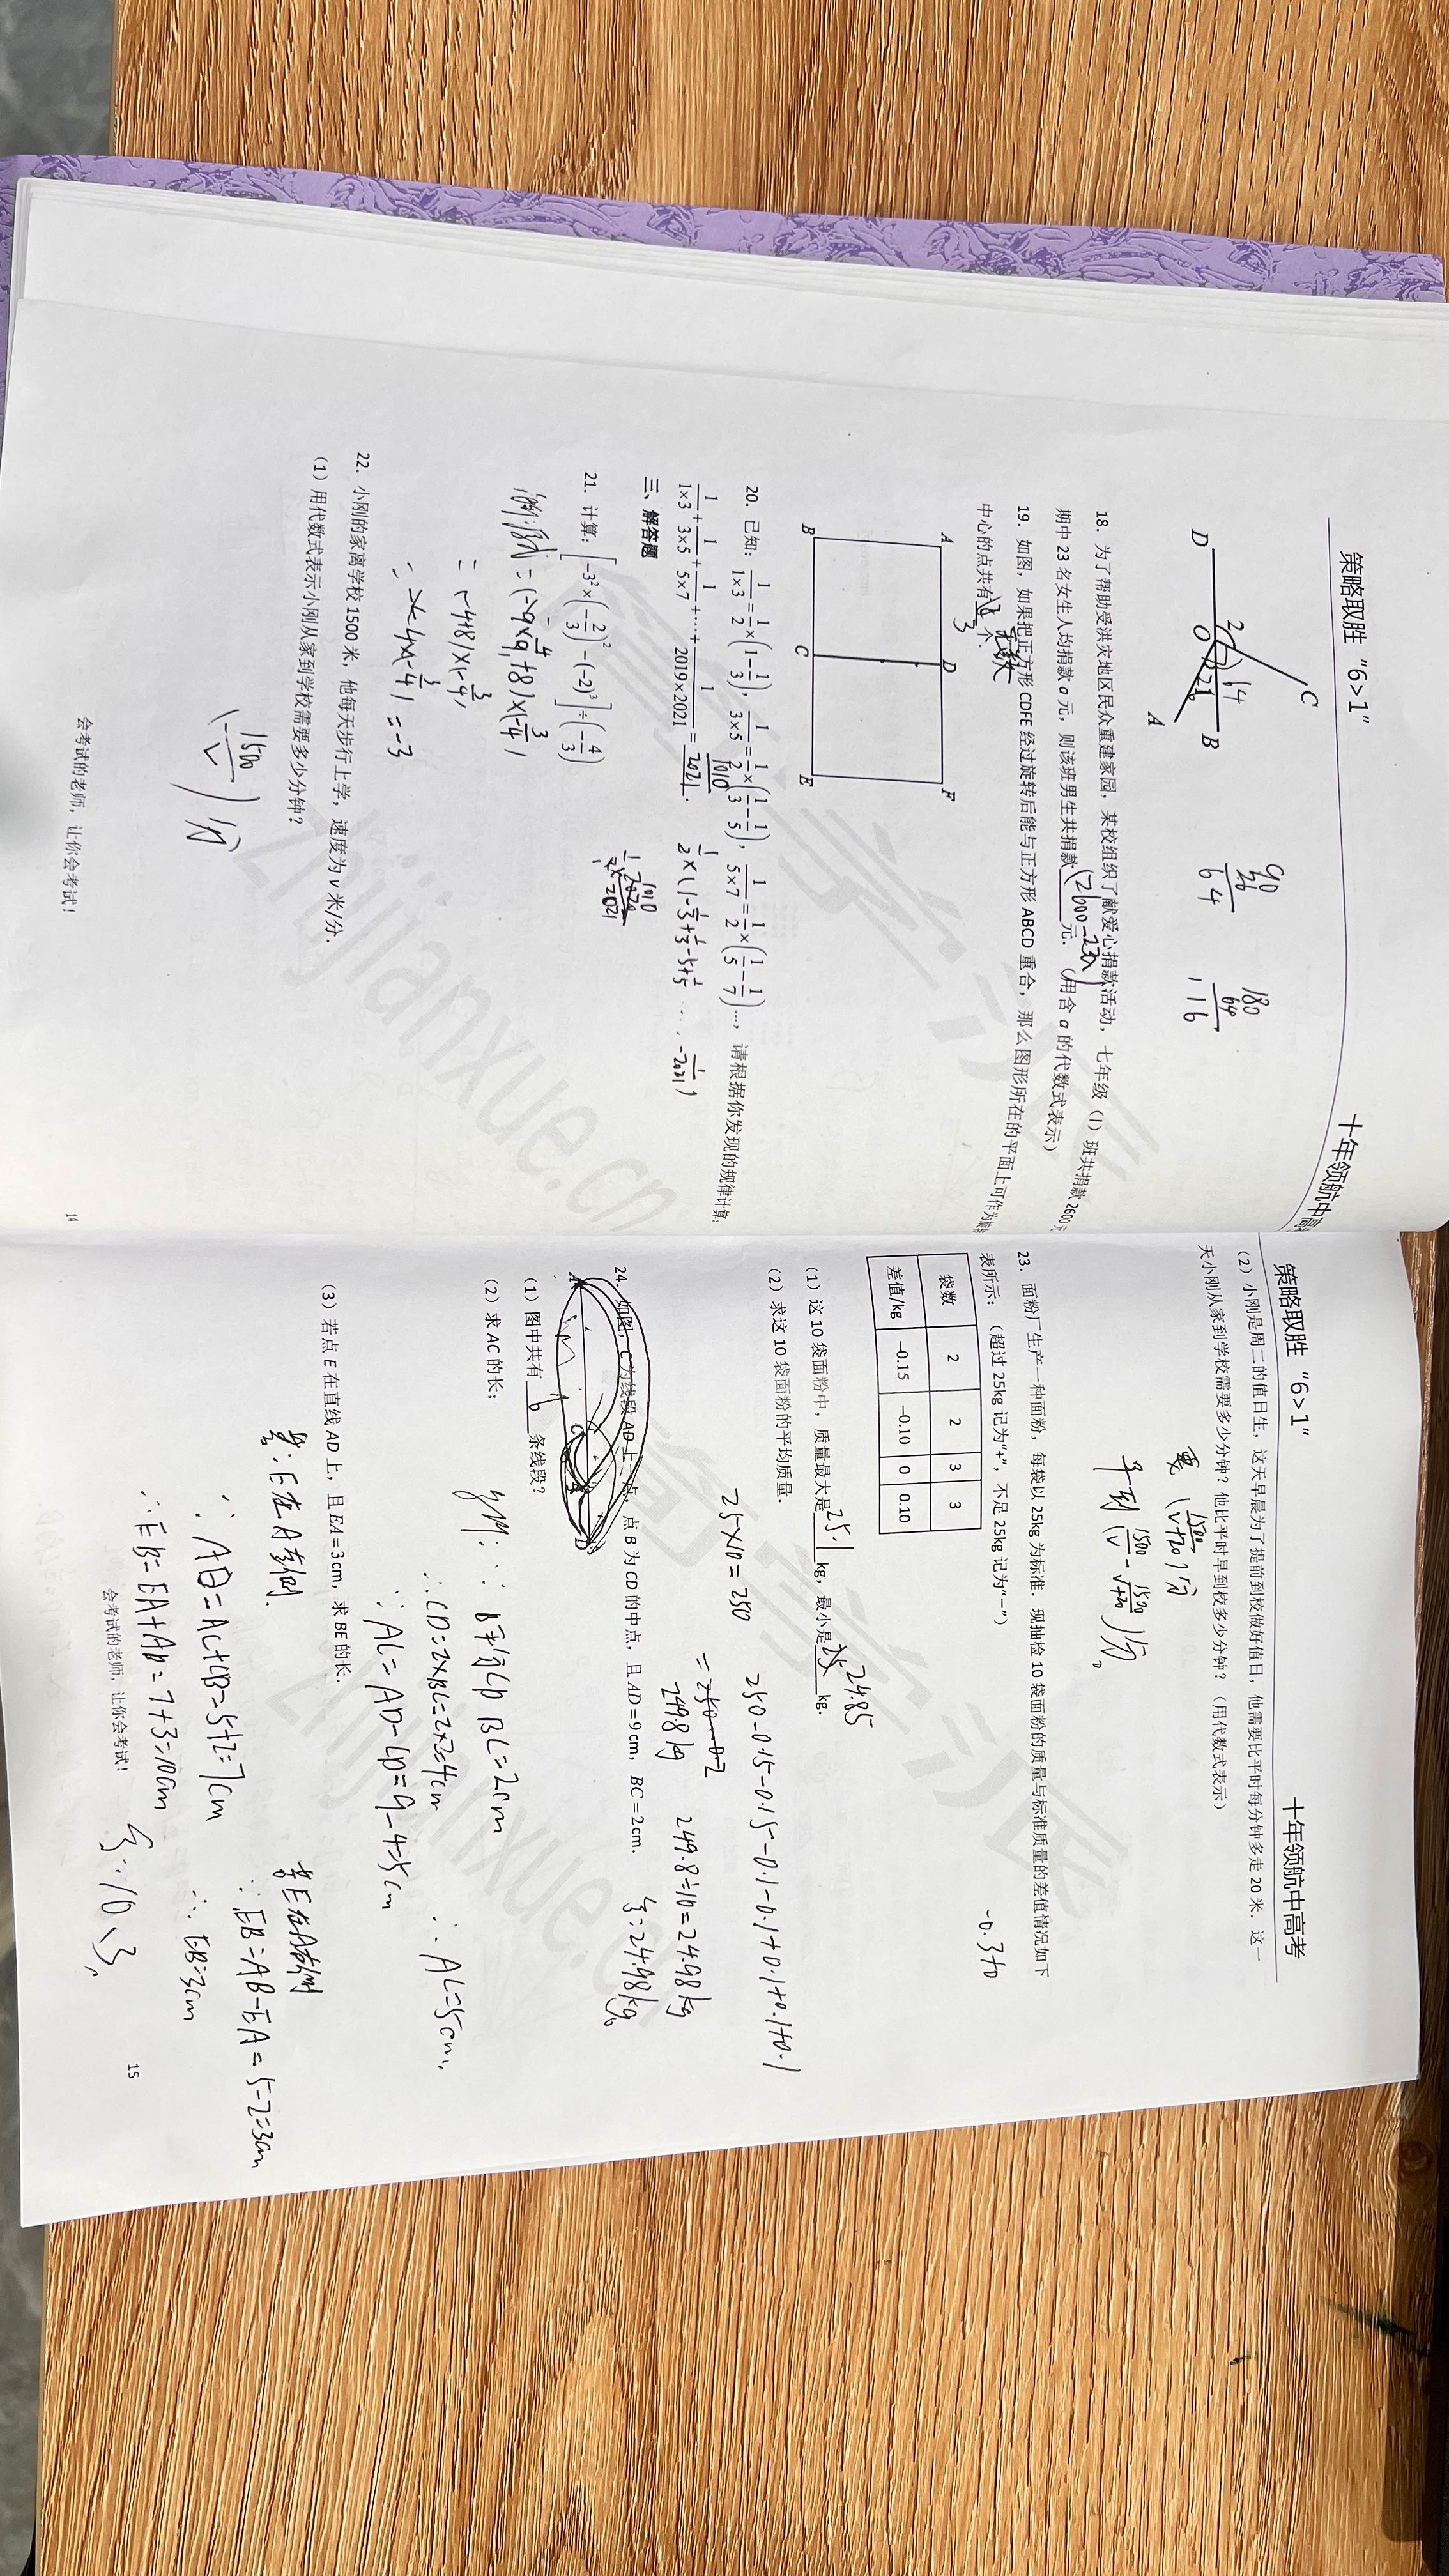 策略取胜“6>1”
十年领航中高考
D
2
O
C
14
26
B
A
90
26
64
180
64
116
18. 为了帮助受洪灾地区民众重建家园，某校组织了献爱心捐款活动，七年级（1）班共捐款2600元
期中23名女生人均捐款a元，则该班男生共捐款(2600-23a)元.（用含a的代数式表示）
19. 如图，如果把正方形CDFE经过旋转后能与正方形ABCD重合，那么图形所在的平面上可作为旋转
中心的点共有 3 个.
A D F
B C E
20. 已知：1/(1×3)=1/2×(1-1/3)，1/(3×5)=1/2×(1/3-1/5)，1/(5×7)=1/2×(1/5-1/7)…，请根据你发现的规律计算：
1/(1×3)+1/(3×5)+1/(5×7)+…+1/(2019×2021)=1010/2021.
1/2×(1-1/3+1/3-1/5+1/5 … -1/2021)
三、解答题
21. 计算：[-3²×(-2/3)²-(-2)³]÷(-4/3)
解:原式=(-9×4/9+8)×(-3/4)
=(-4+8)×(-3/4)
=4×(-3/4)=-3
22. 小刚的家离学校1500米，他每天步行上学，速度为v米/分.
（1）用代数式表示小刚从家到学校需要多少分钟？
(1500/v)分
会考试的老师，让你会考试！
14
策略取胜“6>1”
十年领航中高考
（2）小刚是周二的值日生，这天早晨为了提前到校做好值日，他需要比平时每分钟多走20米．这一
天小刚从家到学校需要多少分钟？他比平时早到校多少分钟？（用代数式表示）
要(1500/(v+20))分
早到(1500/v-1500/(v+20))分。
23. 面粉厂生产一种面粉，每袋以25kg为标准．现抽检10袋面粉的质量与标准质量的差值情况如下
表所示：（超过25kg记为“+”，不足25kg记为“-”）
-0.3+0
袋数 2 2 3 3
差值/kg -0.15 -0.10 0 0.10
（1）这10袋面粉中，质量最大是25.1kg，最小是24.85kg.
（2）求这10袋面粉的平均质量.
25×10=250
250-0.15-0.15-0.1-0.1+0.1+0.1+0.1
=250-0.2
249.8kg
249.8÷10=24.98kg
答:24.98kg。
24. 如图，C为线段AD上一点，点B为CD的中点，且AD=9cm，BC=2cm.
A C B D
（1）图中共有 6 条线段？
（2）求AC的长；
∵B平分CD BC=2cm
∴CD=2×BC=2×2=4cm
∴AC=AD-CD=9-4=5cm
∴AC=5cm.
（3）若点E在直线AD上，且EA=3cm，求BE的长.
若:E在A左侧.
∵AB=AC+CB=5+2=7cm
∴EB=EA+AB=7+3=10cm
若E在A右侧
∵EB=AB-EA=5-2=3cm
∴EB=3cm
答:10、3。
会考试的老师，让你会考试！
15